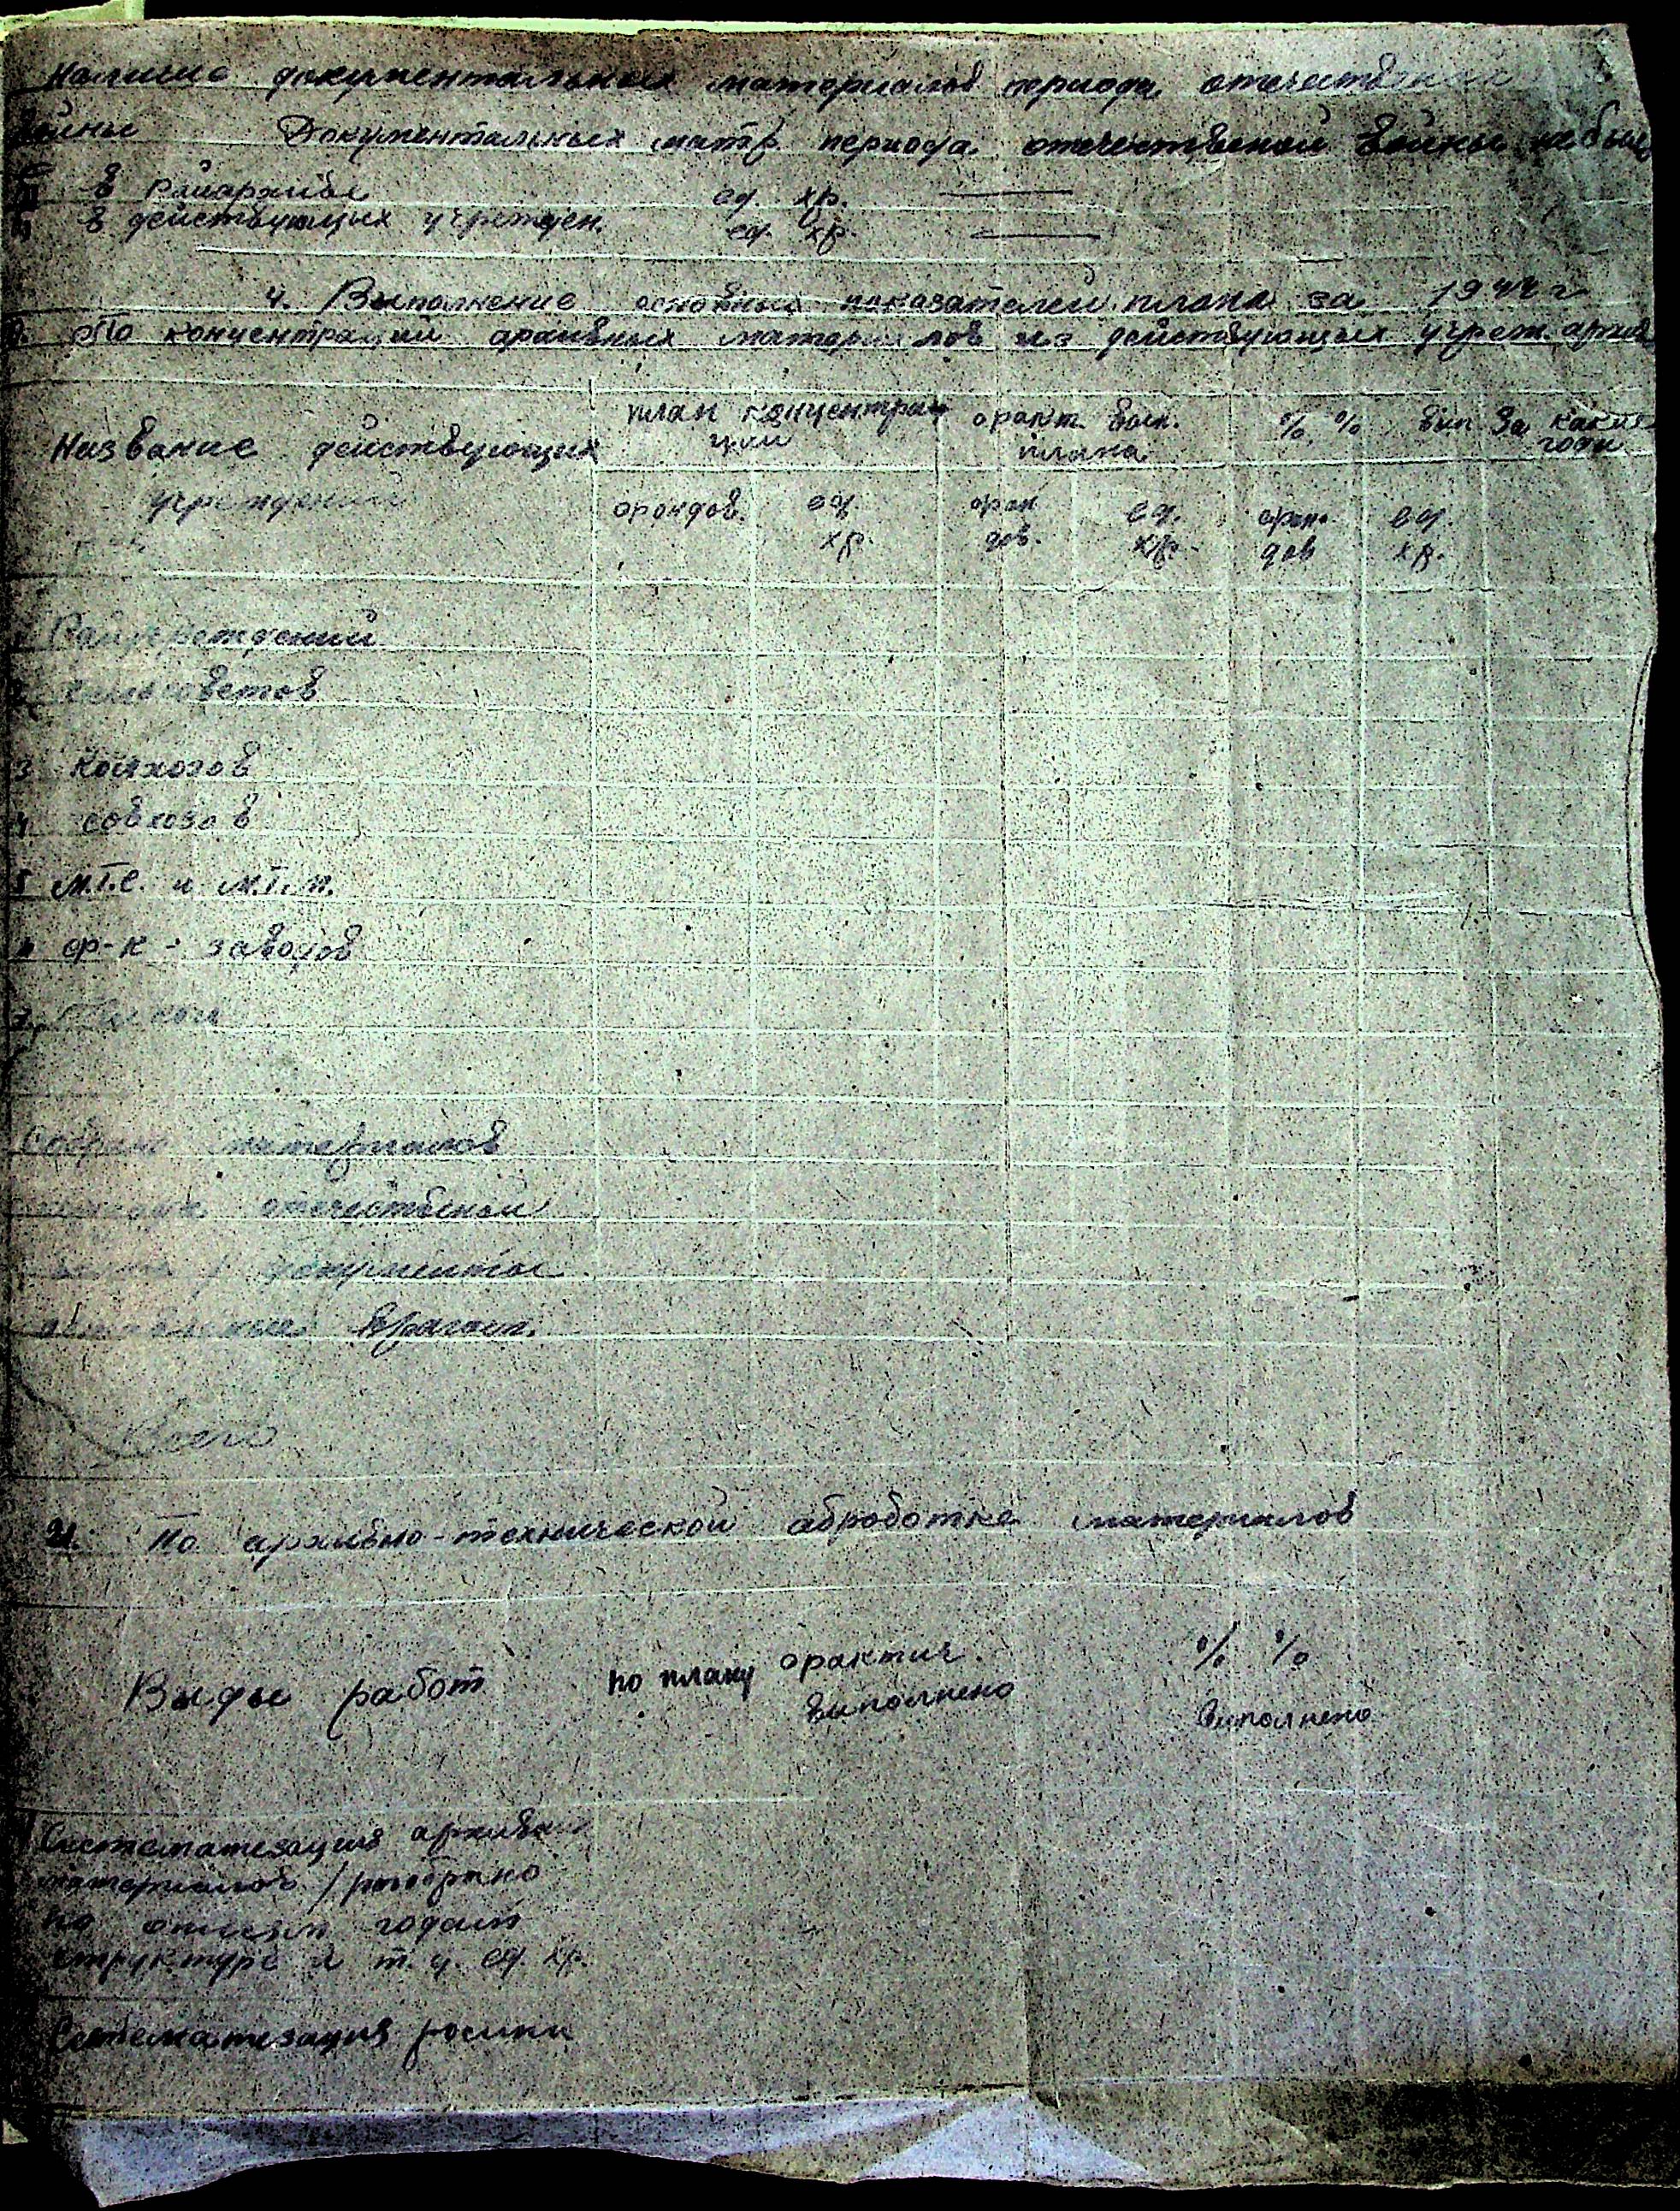 Наличие документальных материалов периода отечествен
войны Документальных матер периода отечественой войны не был
в Райархиве ед. хр. —
в действующих учрежден. ед. хр. —
4. Выполнение основных показателей плана за 1944 г
По концентрации архивных материалов из действующих учреж. архив
Название действующих учреждений
план концентрац
ции
факт. вып.
плана
% % вып
За какие
годы
фондов.
ед.
хр.
фон
дов.
ед.
хр.
фон.
дов
ед.
хр.
Райучреждений
сельсоветов
3 колхозов
4 совхозов
5 М.Т.С. и М.Т.М.
ф-к - заводов
материалов
отечественой
документы
врагом.
Всего
По архивно-технической аброботке материалов
Выды работ
по плану
фрактич.
выполнено
% %
Выполнено
Систематезация архивн
материалов / разобрано
по описям годам
структуре и т. д. ед. хр.
Систематезация росыпи